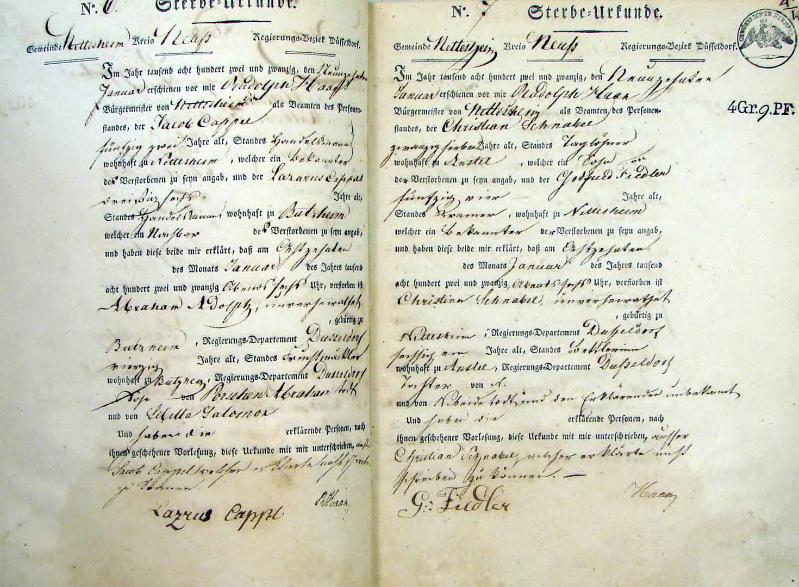 Nr. 6 Sterbe-Urkunde.
Gemeinde Nettesheim Kreis Neuß Regierungs-Bezirk Düsseldorf.
Im Jahr tausend acht hundert zwei und zwanzig, den Neunzehnten
Januar erschienen vor mir Rudolph Haan
Bürgermeister von Nettesheim als Beamten des Personen-
standes, der Jacob Cappel
fünfzig zwei Jahre alt, Standes Handelsmann
wohnhaft zu Nettesheim, welcher ein Bekannter
des Verstorbenen zu seyn angab, und der Lazarus Cappel
dreißig sechs Jahre alt,
Standes Handelsmann wohnhaft zu Butzheim
welcher ein Nachbar des Verstorbenen zu seyn angab,
und haben diese beide mir erklärt, daß am Achtzehnten
des Monats Januar des Jahres tausend
acht hundert zwei und zwanzig Abends sechs Uhr, verstorben ist
Abraham Adolph, unverheirathet
, gebürtig zu
Butzheim, Regierungs-Departement Düsseldorf
vierzig Jahre alt, Standes
wohnhaft zu Butzheim, Regierungs-Departement Düsseldorf
Sohn von Abraham todt
und von Sibilla Salomon
Und haben die erklärende Personen, nach
ihnen geschehener Vorlesung, diese Urkunde mit mir unterschrieben,
Jacob Cappel welcher erklärte nicht schreiben
zu können
Lazrus Cappl RHaan
Nr. 7 Sterbe-Urkunde.
Gemeinde Nettesheim Kreis Neuß Regierungs-Bezirk Düsseldorf.
Im Jahr tausend acht hundert zwei und zwanzig, den Neunzehnten
Januar erschienen vor mir Rudolph Haan
Bürgermeister von Nettesheim als Beamten des Personen-
standes, der Christian Schnabel
zwanzig sieben Jahre alt, Standes Taglöhner
wohnhaft zu Anstel, welcher ein Sohn
der Verstorbenen zu seyn angab, und der Godfried Fiedler
fünfzig vier Jahre alt,
Standes Krämer, wohnhaft zu Nettesheim
welcher ein Bekannter der Verstorbenen zu seyn angab,
und haben diese beide mir erklärt, daß am Achtzehnten
des Monats Januar des Jahres tausend
acht hundert zwei und zwanzig, Abends sechs Uhr, verstorben ist
Christina Schnabel, unverheirathet
, gebürtig zu
Nettesheim, Regierungs-Departement Düsseldorf
sechszig ein Jahre alt, Standes Bettlerinn
wohnhaft zu Anstel, Regierungs-Departement Düsseldorf
Tochter von N.
und von N. beide todt und den Erklärenden unbekannt
Und haben die erklärende Personen, nach
ihnen geschehener Vorlesung, diese Urkunde mit mir unterschrieben, ausser
Christian Schnabel, welcher erklärte nicht
schreiben zu können.
G: Fiedler RHaan
4Gr.9.PF.